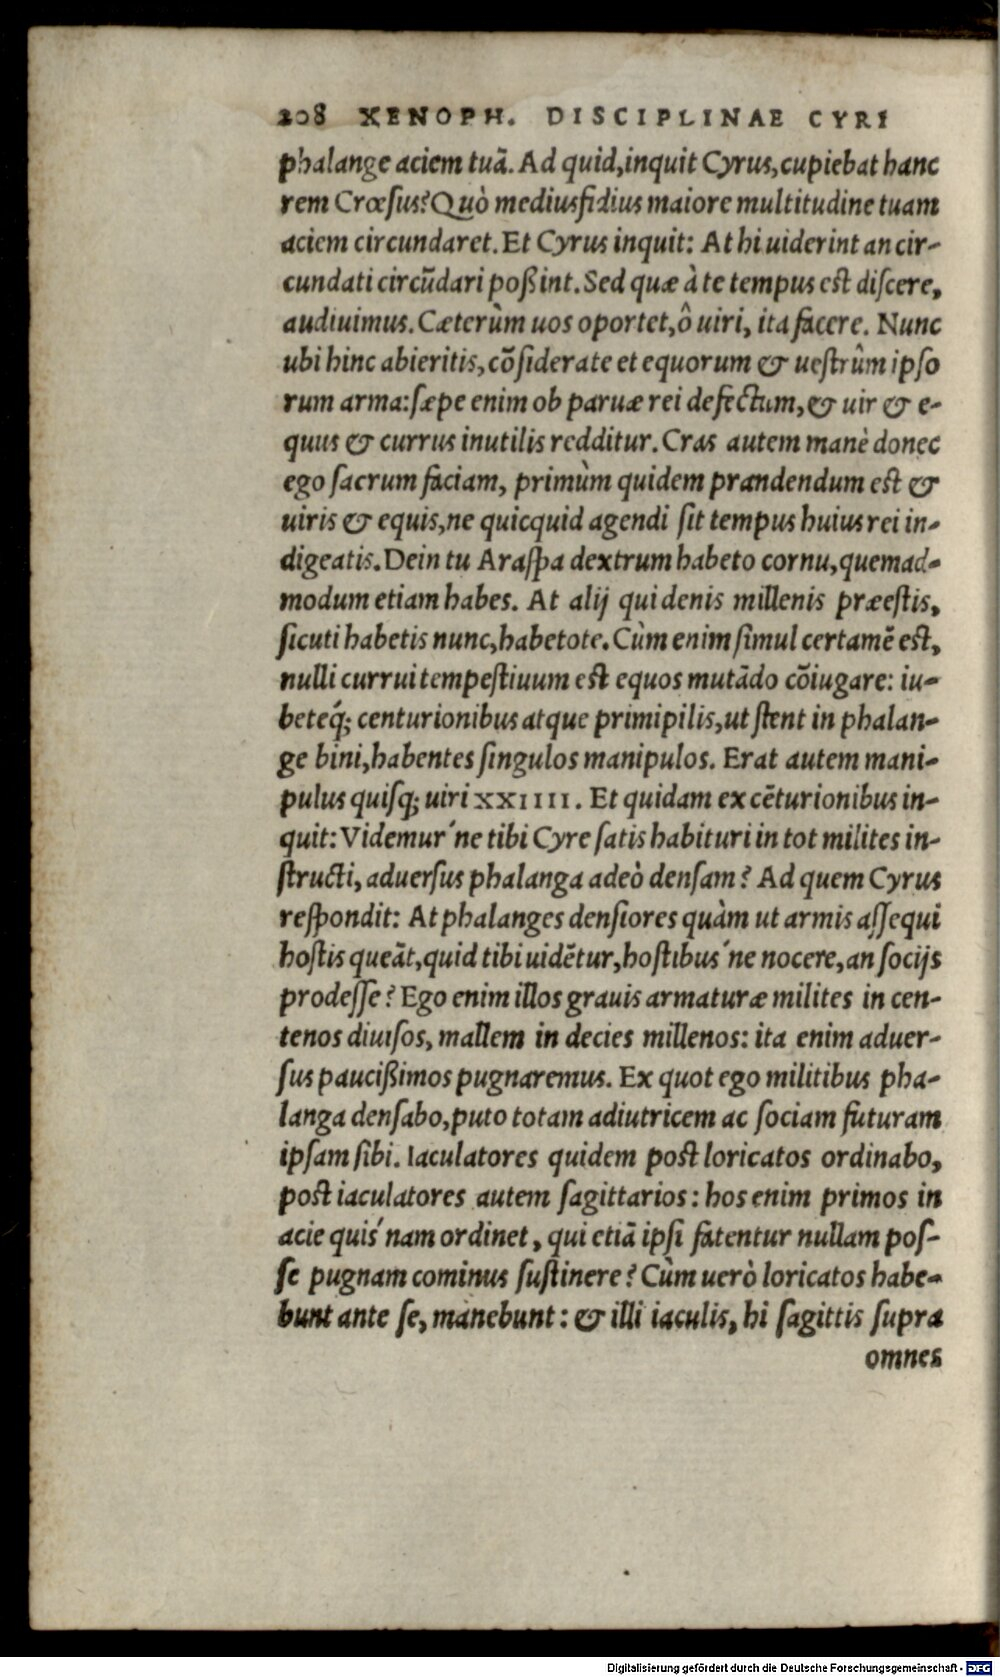 208 XENOPH. DISCIPLINAE CYRI
phalange aciem tuã. Ad quid, inquit Cyrus, cupiebat hanc
rem Crœsus? Quò mediusfidius maiore multitudine tuam
aciem circundaret. Et Cyrus inquit: At hi uiderint an cir-
cundati circũdari poßint. Sed quæ à te tempus est discere,
audiuimus. Cæterùm uos oportet, ô uiri, ita facere. Nunc
ubi hinc abieritis, cõsiderate et equorum & uestrûm ipso
rum arma: sæpe enim ob paruæ rei defectum, & uir & e-
quus & currus inutilis redditur. Cras autem manè donec
ego sacrum faciam, primùm quidem prandendum est &
uiris & equis, ne quicquid agendi sit tempus huius rei in-
digeatis. Dein tu Araspa dextrum habeto cornu, quemad-
modum etiam habes. At alij qui denis millenis præestis,
sicuti habetis nunc, habetote. Cùm enim simul certamẽ est,
nulli currui tempestiuum est equos mutãdo cõiugare: iu-
beteq́; centurionibus atque primipilis, ut stent in phalan-
ge bini, habentes singulos manipulos. Erat autem mani-
pulus quisq; uiri XXIIII. Et quidam ex cẽturionibus in-
quit: Videmur´ne tibi Cyre satis habituri in tot milites in-
structi, aduersus phalanga adeò densam? Ad quem Cyrus
respondit: At phalanges densiores quàm ut armis assequi
hostis queãt, quid tibi uidẽtur, hostibus´ne nocere, an socijs
prodesse? Ego enim illos grauis armaturæ milites in cen-
tenos diuisos, mallem in decies millenos: ita enim aduer-
sus paucißimos pugnaremus. Ex quot ego militibus pha-
langa densabo, puto totam adiutricem ac sociam futuram
ipsam sibi. Iaculatores quidem post loricatos ordinabo,
post iaculatores autem sagittarios: hos enim primos in
acie quis´nam ordinet, qui etiã ipsi fatentur nullam pos-
se pugnam cominus sustinere? Cùm uerò loricatos habe-
bunt ante se, manebunt: & illi iaculis, hi sagittis supra
omnes
Digitalisierung gefördert durch die Deutsche Forschungsgemeinschaft - DFG